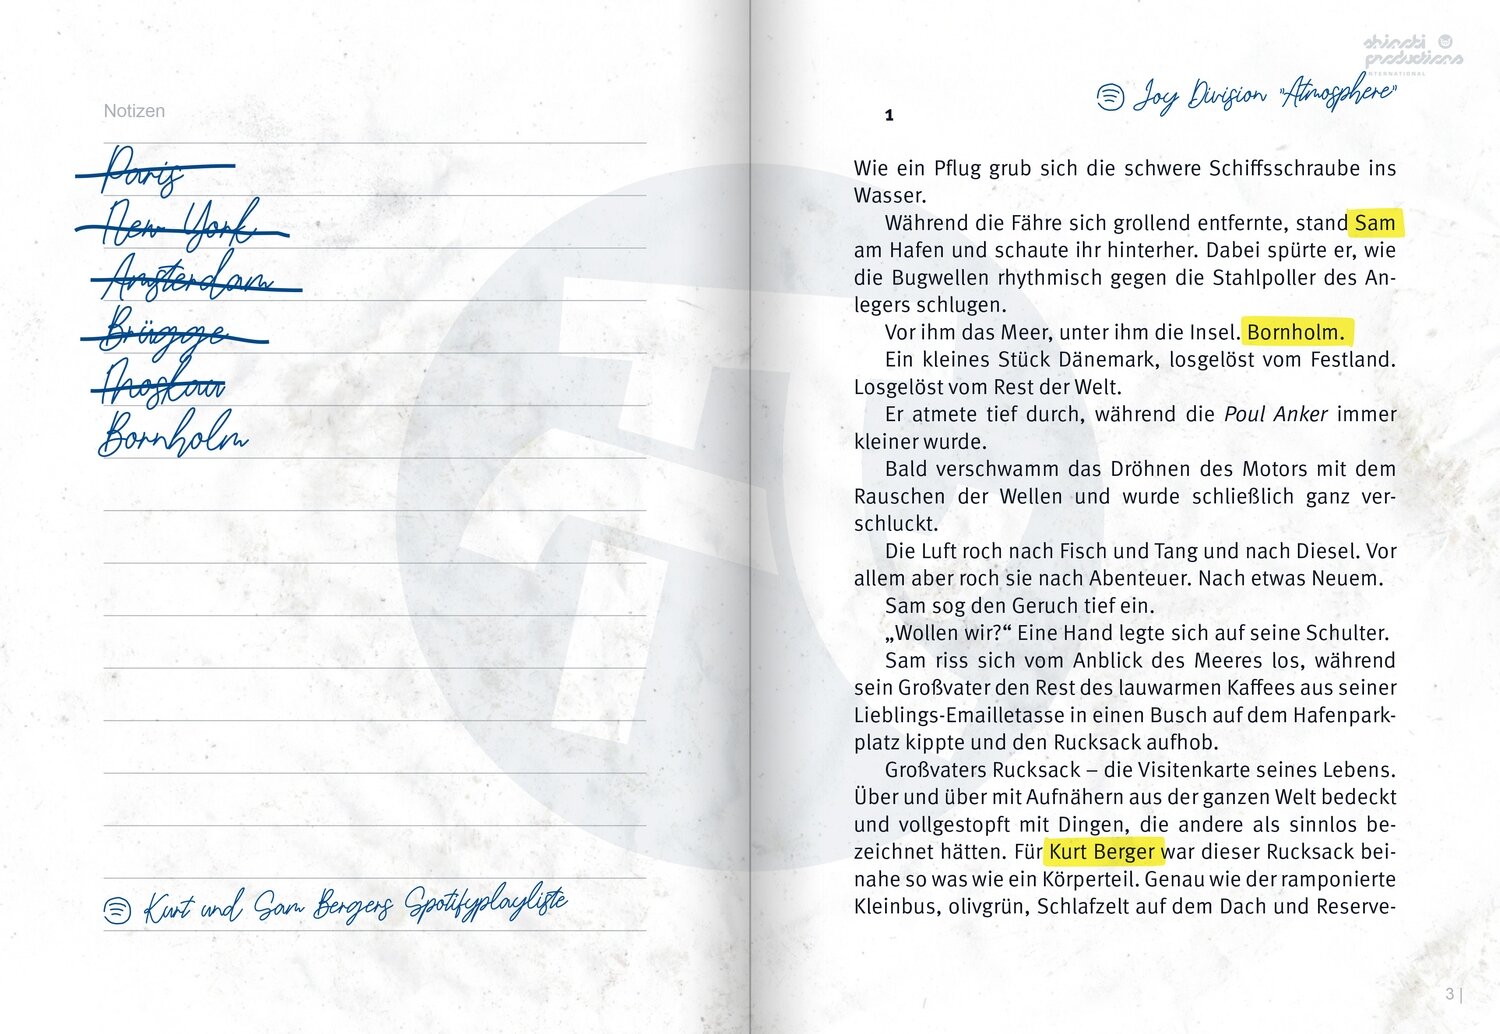 Notizen
Paris
New York
Amsterdam
Brügge
Moskau
Bornholm
Kurt und Sam Bergers Spotifyplayliste
shinobi
productions
INTERNATIONAL
Joy Division "Atmosphere"
1
Wie ein Pflug grub sich die schwere Schiffsschraube ins
Wasser.
Während die Fähre sich grollend entfernte, stand Sam
am Hafen und schaute ihr hinterher. Dabei spürte er, wie
die Bugwellen rhythmisch gegen die Stahlpoller des An-
legers schlugen.
Vor ihm das Meer, unter ihm die Insel. Bornholm.
Ein kleines Stück Dänemark, losgelöst vom Festland.
Losgelöst vom Rest der Welt.
Er atmete tief durch, während die Poul Anker immer
kleiner wurde.
Bald verschwamm das Dröhnen des Motors mit dem
Rauschen der Wellen und wurde schließlich ganz ver-
schluckt.
Die Luft roch nach Fisch und Tang und nach Diesel. Vor
allem aber roch sie nach Abenteuer. Nach etwas Neuem.
Sam sog den Geruch tief ein.
„Wollen wir?“ Eine Hand legte sich auf seine Schulter.
Sam riss sich vom Anblick des Meeres los, während
sein Großvater den Rest des lauwarmen Kaffees aus seiner
Lieblings-Emailletasse in einen Busch auf dem Hafenpark-
platz kippte und den Rucksack aufhob.
Großvaters Rucksack – die Visitenkarte seines Lebens.
Über und über mit Aufnähern aus der ganzen Welt bedeckt
und vollgestopft mit Dingen, die andere als sinnlos be-
zeichnet hätten. Für Kurt Berger war dieser Rucksack bei-
nahe so was wie ein Körperteil. Genau wie der ramponierte
Kleinbus, olivgrün, Schlafzelt auf dem Dach und Reserve-
3 |